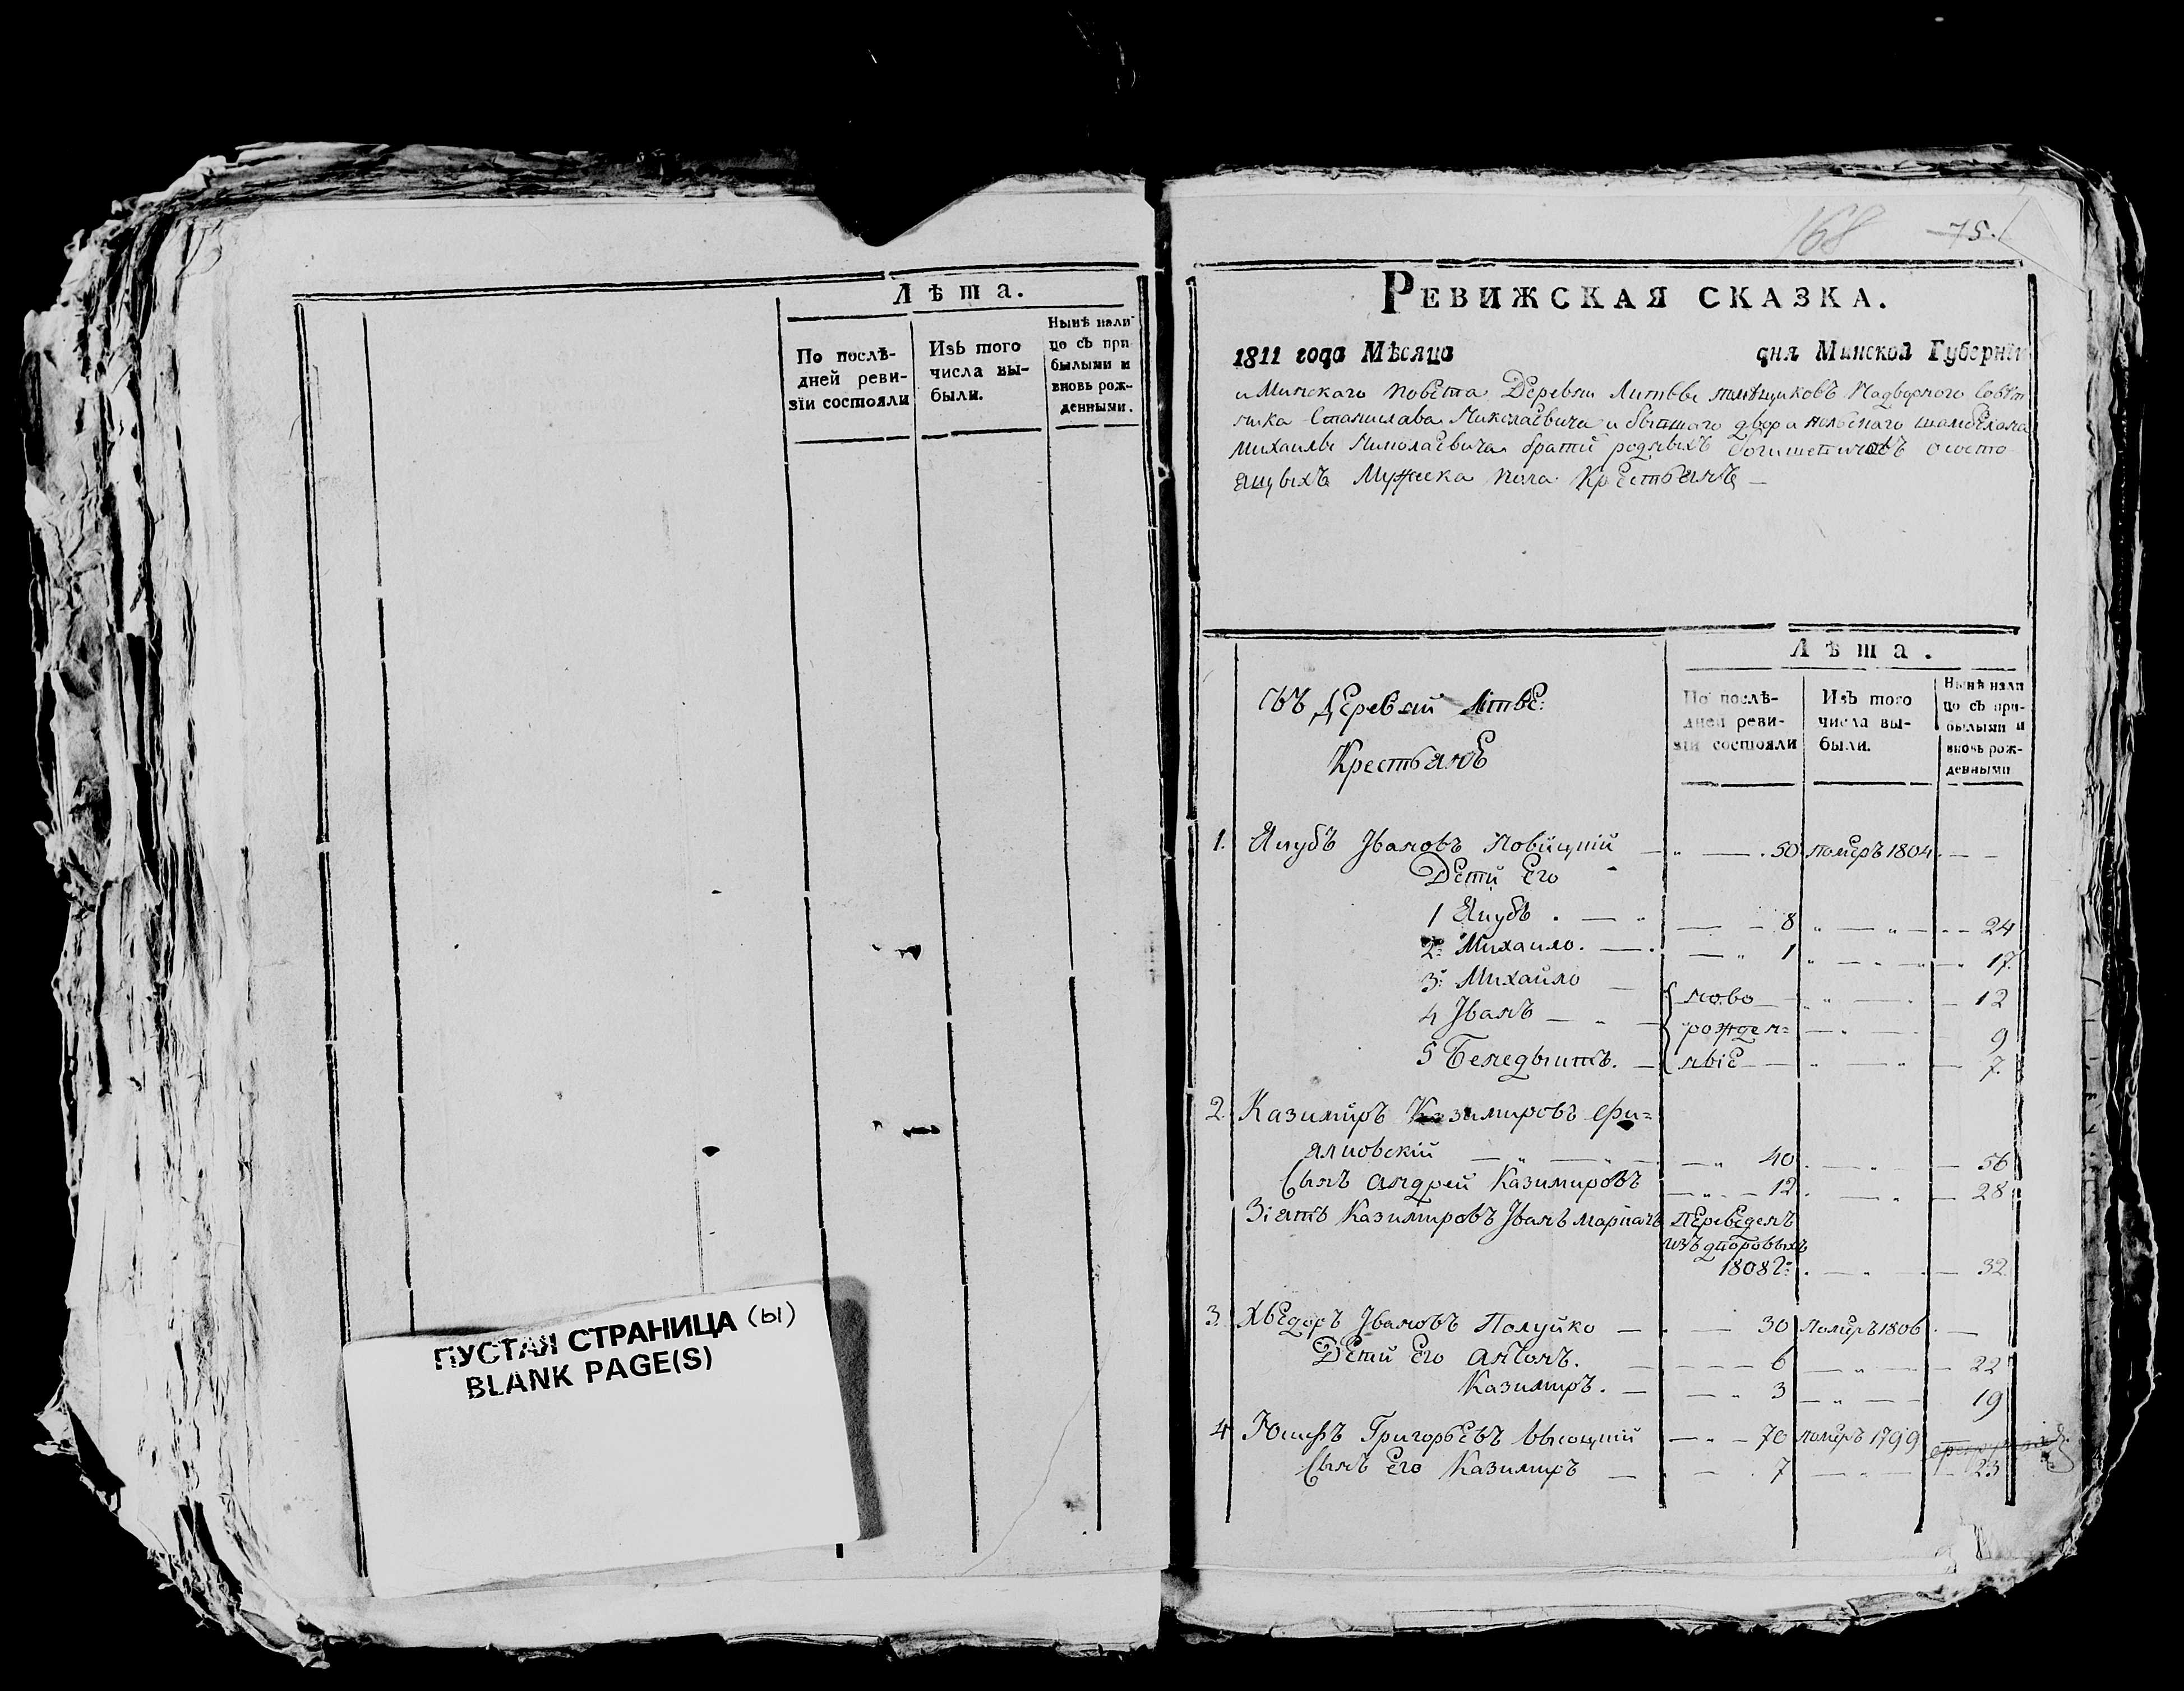 Лѣта.
По послѣ-
дней реви-
зіи состояли
Изъ того
числа вы-
были.
Нынѣ нали
цо съ при
былыми и
вновь рож-
денными.
ПУСТАЯ СТРАНИЦА (ы)
BLANK PAGE(S)
168 75.
РЕВИЖСКАЯ СКАЗКА.
1811 года Мѣсяца дня Минской Губерніи
и Минскаго повета Деревни Литвы помѣщиковъ Надворного Совѣт
ника Станислава Николаевича и бытшаго двора польскаго шамбелана
Михаила Николаевича братей родныхъ о состо
ящыхъ Мужеска пола Крестьянъ —
Лѣта.
По послѣ-
дней реви-
зіи состояли
Изъ того
числа вы-
были.
Нынѣ нали
цо съ при-
былыми и
вновь рож-
денными
Въ Деревни Литве:
Крестьянъ
1. Якубъ Ивановъ Новицкій 50 померъ 1804
Дети Его
1 Якубъ 8 24
2: Михаило. 1 17.
3: Михайло ново 12
4 Иванъ рожден= 9
5 Бенедыктъ. ныіе 7.
2. Казимиръ Казимировъ Фи=
ялковскій 40 56
Сынъ Андрей Казимировъ 12 28
Зіять Казимировъ Иванъ Переведенъ
изъ дворовыхъ
1808 г: 32
3. Хведоръ Ивановъ Полуйко 30 померъ 1806
Дети Его Антонъ. 6 22
Казимиръ. 3 19
4 Юзифъ Григорьевъ Высоцкій 70 померъ 1799
Сынъ Его Казимиръ 7 23